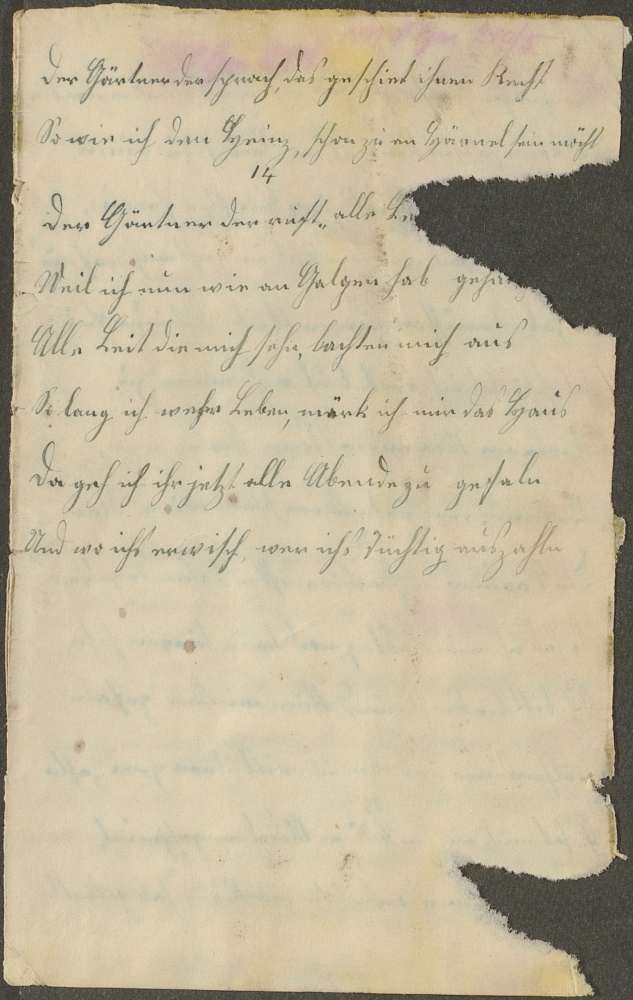 Der Gärtner der sprach, das geschiet ihnen Recht
So wie ich den Heinz, schon zu en Härnel sein möcht
14
Der Gärtner der ruft, alle
Weil ich nun wie an Galgen hab
Alle Leit die mich sehn, lachten mich aus
So lang ich wehr Leben, märk ich mir das Haus
Da geh ich ihr jetzt alle Abende zu
Und wo ichs erwisch, wer ichs Tüchtig auszahln